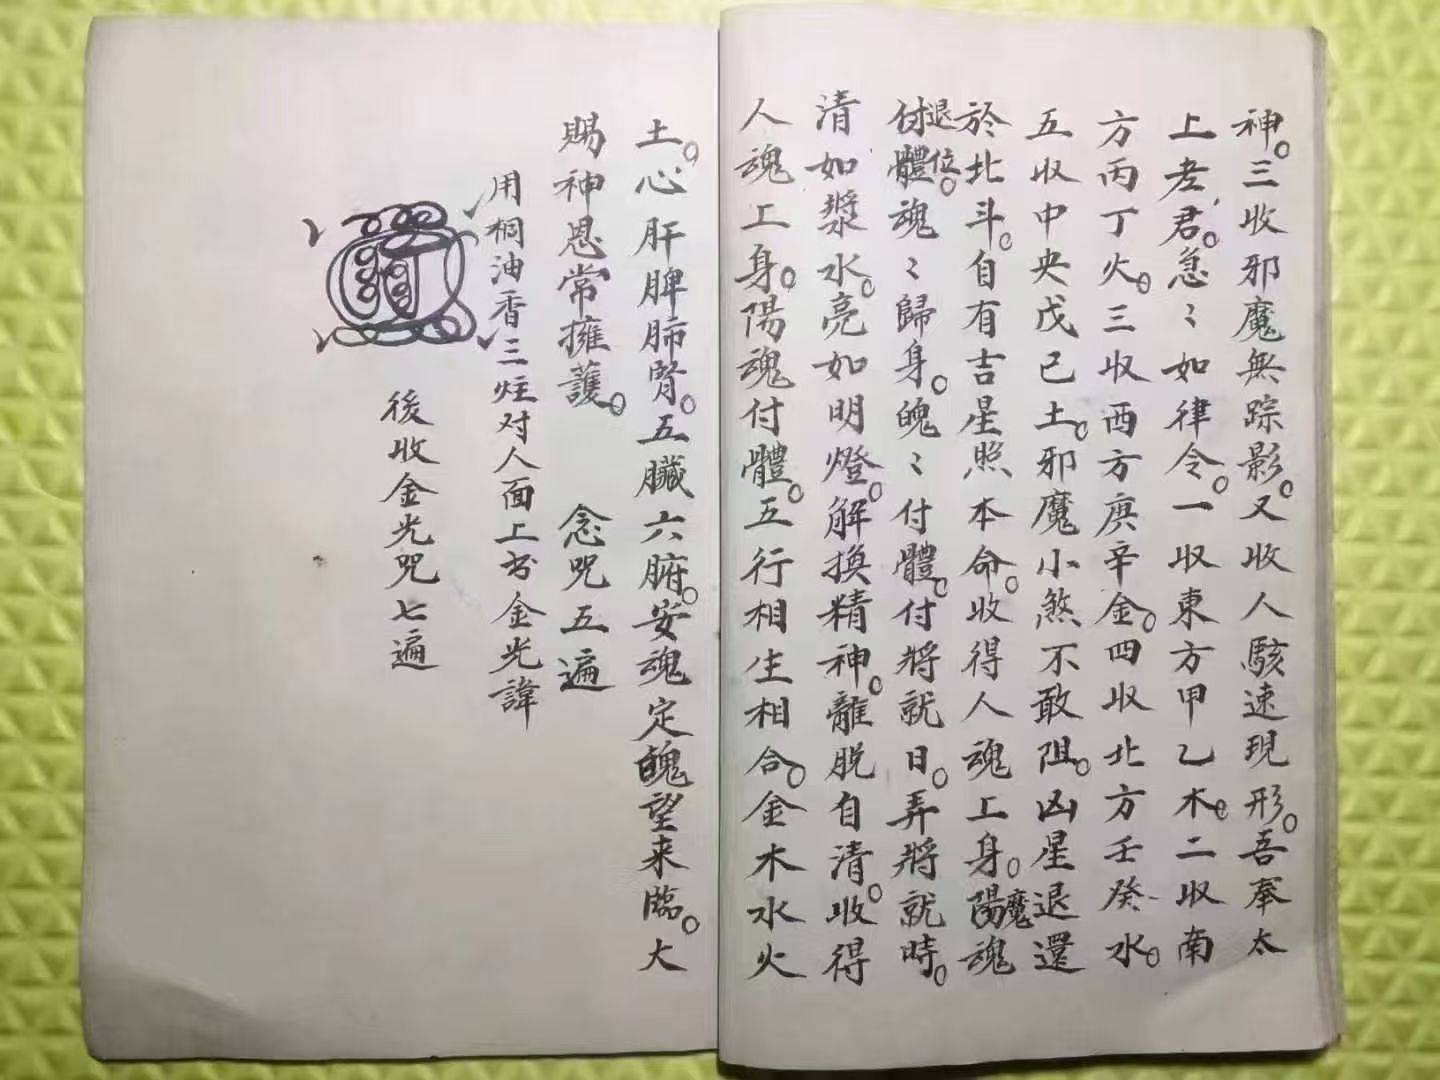 神。三收邪魔無踪影。又收人駭速現形。吾奉太
上老君。急〻如律令。一收東方甲乙木。二收南
方丙丁火。三收西方庚辛金。四收北方壬癸水。
五收中央戊己土。邪魔小煞不敢阻。凶星退還
於北斗。自有吉星照本命。收得人魂上身。陽魂
魔
退位。
付體魂〻歸身。魄〻付體。付將就日。弄將就時。
清如漿水。亮如明燈。解換精神。離脱自清。收得
人魂上身。陽魂付體。五行相生相合。金木水火
土。心肝脾肺腎。五臟六腑。安魂定魄望来臨。大
賜神恩常擁護。 念咒五遍
用桐油香三炷对人面上书金光諱
後收金光咒七遍